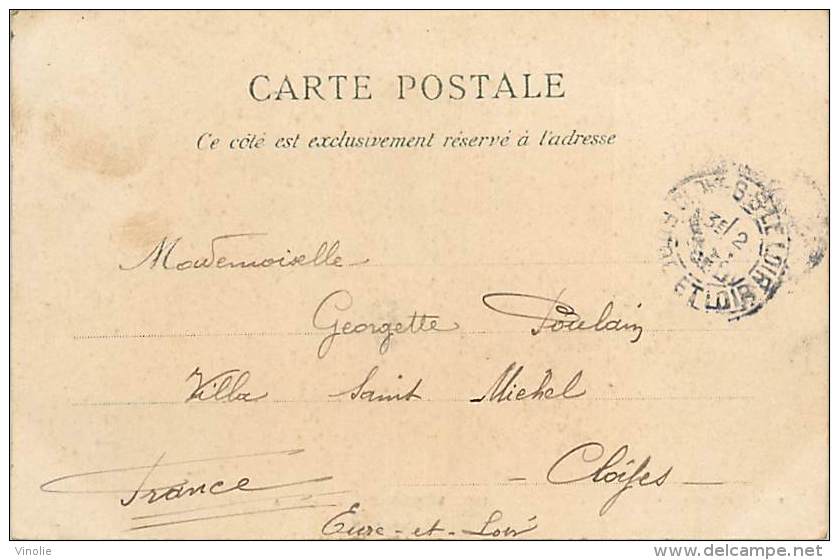 CARTE POSTALE
Ce côté est exclusivement réservé à l'adresse
S/LE LOIR
ET LOIR
Mademoiselle
Georgette Poulain
Villa Saint Michel
- Cloÿes -
France
Eure-et-Loir
Vinolie
www.delcampe.net